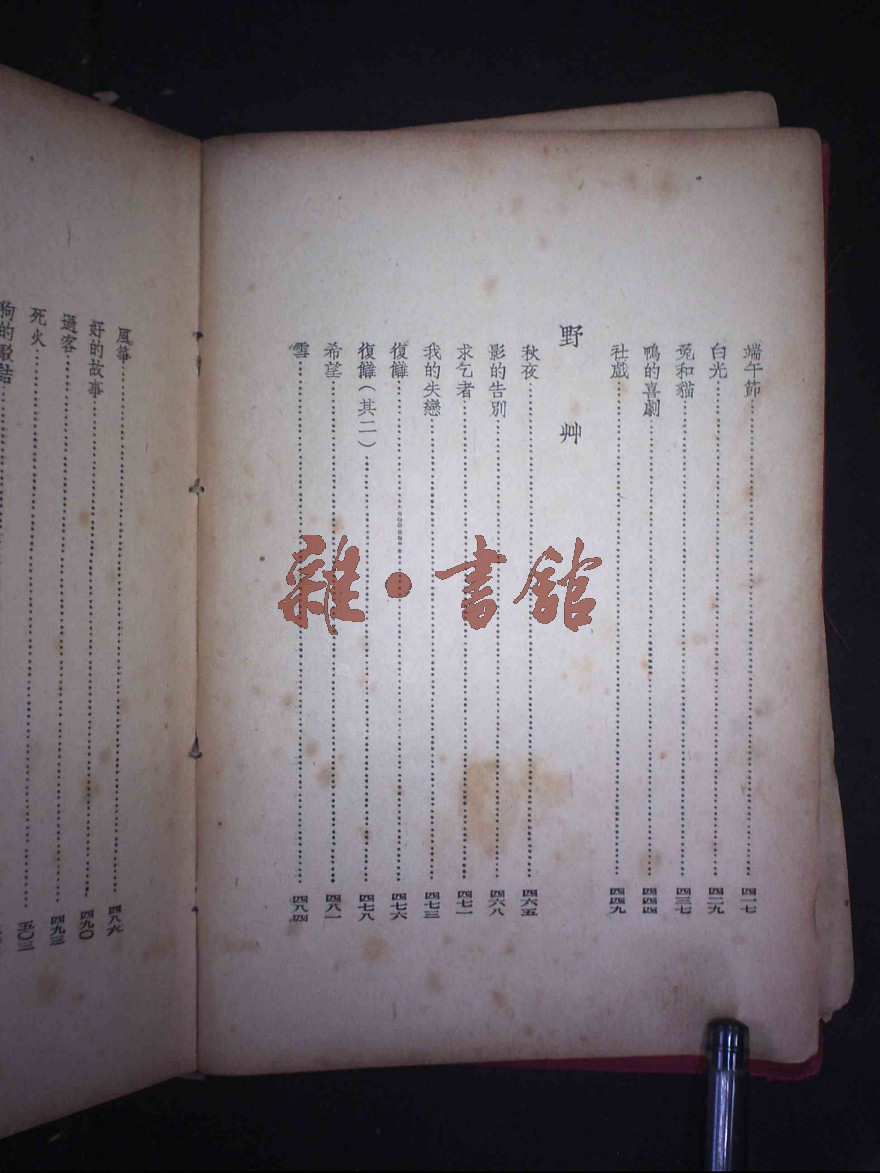 端午節⋯⋯四一七
白光⋯⋯四二九
兔和貓⋯⋯四三七
鴨的喜劇⋯⋯四四四
社戲⋯⋯四四九
野艸
秋夜⋯⋯四六五
影的告別⋯⋯四六八
求乞者⋯⋯四七一
我的失戀⋯⋯四七三
復讎⋯⋯四七六
復讎(其二)⋯⋯四七八
希望⋯⋯四八一
雪⋯⋯四八四
風箏⋯⋯四八六
好的故事⋯⋯四九〇
過客⋯⋯四九三
死火⋯⋯五〇三
狗的駁詰
雜·書館